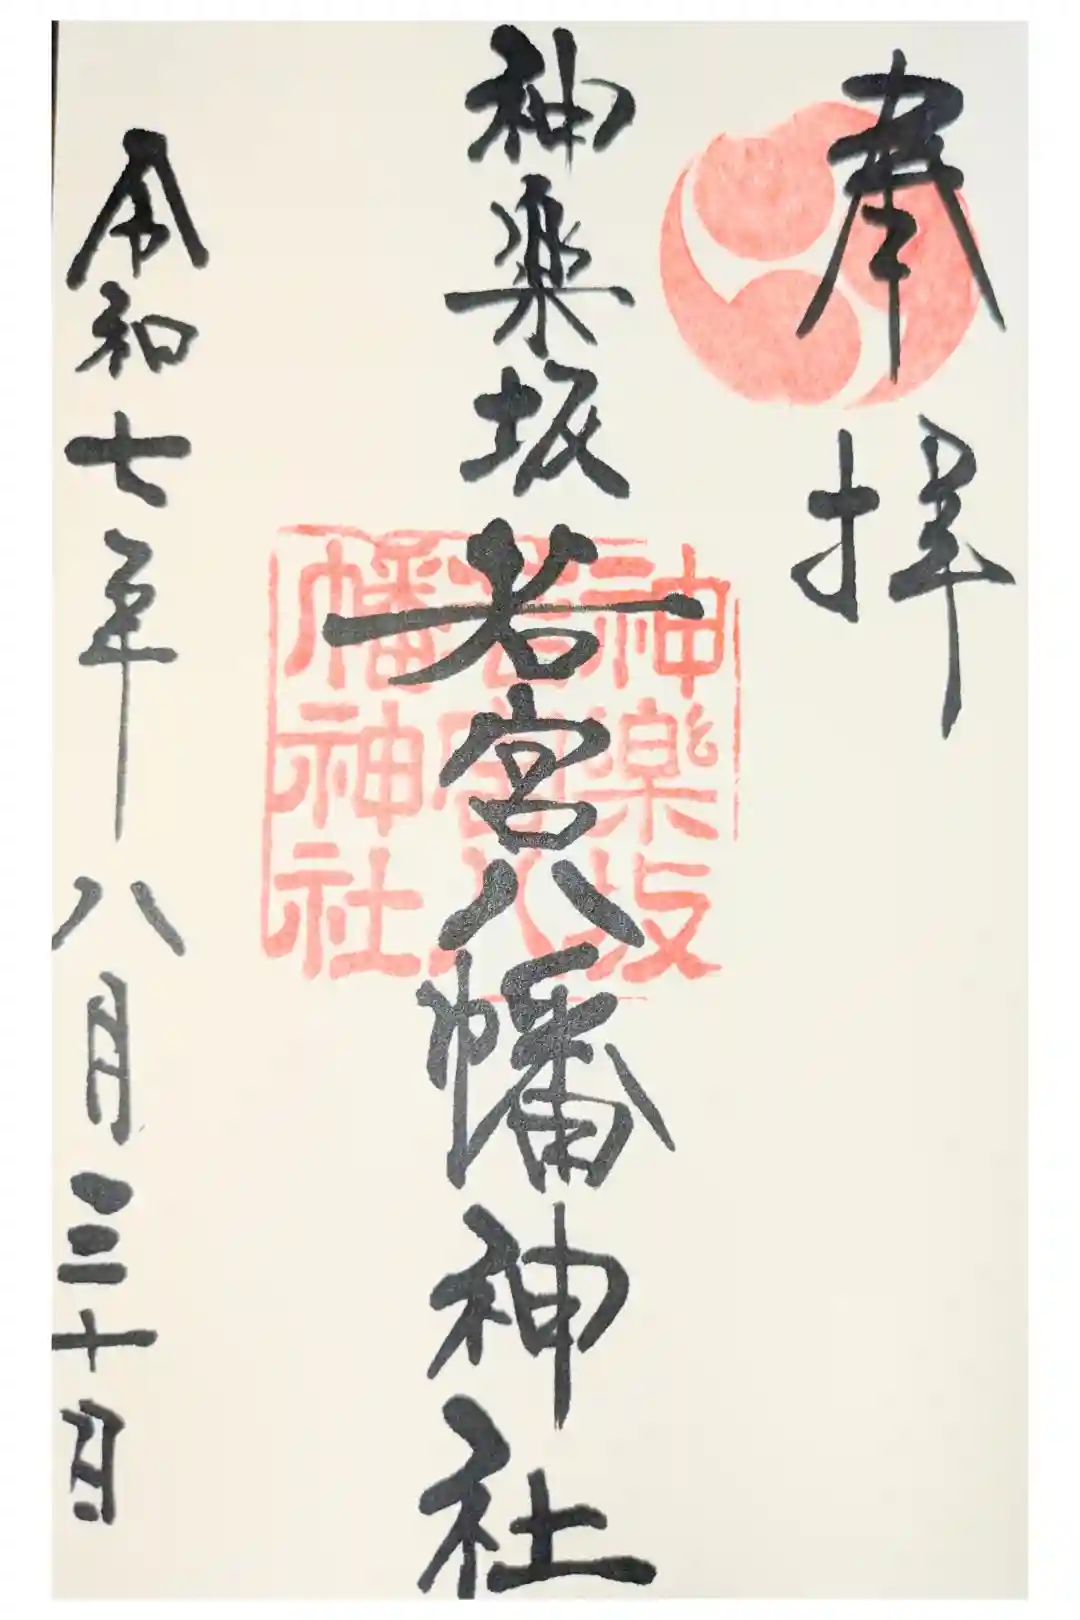 奉拝
神楽坂若宮八幡神社
神楽坂
若宮八
幡神社
令和七年八月三十日